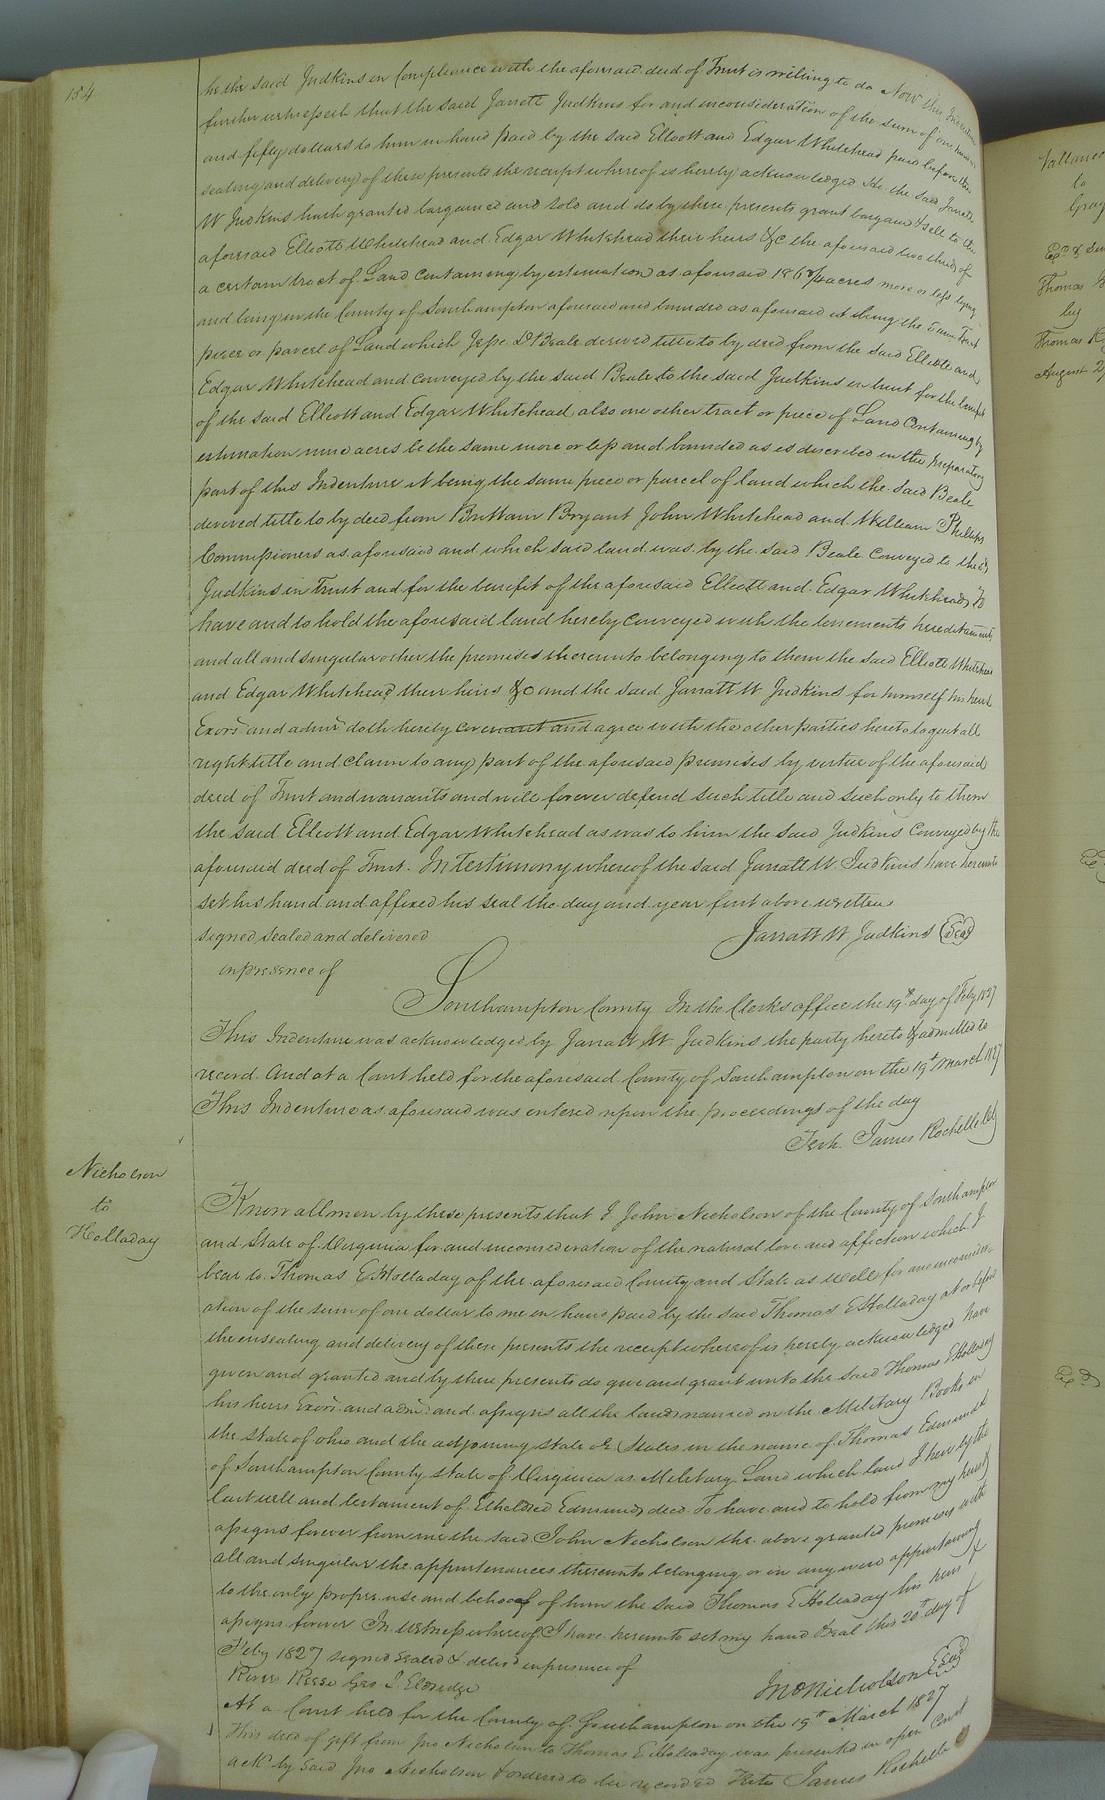 154
he the said Judkins in Compliance with the aforesaid deed of Trust is willing to do Now this Indenture
further witnesseth that the said Jarratt Judkins for and inconsideration of the sum of one hundred
and fifty dollars to him in hand paid by the said Elliott and Edgar Whitehead paid before the
sealing and delivery of these presents the receipt whereof is hereby acknowledged he the said Jarratt
W Judkins hath granted bargained and sold and do by these presents grant bargain & sell to the
aforesaid Elliott Whitehead and Edgar Whitehead their heirs &c the aforesaid two thirds of
a certain tract of Land containing by estimation as aforesaid 186 acres more or less lying
and being in the County of Southampton aforesaid and bounded as aforesaid it being the same Tract
piece or parcel of Land which Jesse D Beale derived title to by deed from the said Elliott and
Edgar Whitehead and conveyed by the said Beale to the said Judkins in trust for the benefit
of the said Elliott and Edgar Whitehead also one other tract or piece of Land Containing by
estimation nine acres be the same more or less and bounded as is described in the preparatory
part of this Indenture it being the same piece or parcel of land which the said Beale
derived title to by deed from Brittain Bryant John Whitehead and William Phillips
Commissioners as aforesaid and which said land was by the said Beale conveyed to the sd
Judkins in Trust and for the benefit of the aforesaid Elliott and Edgar Whitehead To
have and to hold the aforesaid land hereby conveyed with the tenements hereditaments
and all and singular other the premises thereunto belonging to them the said Elliott Whitehead
and Edgar Whitehead their heirs &c and the said Jarratt W Judkins for himself his heirs
Exors and admrs doth hereby covenant and agree with the other parties hereto to quit all
right title and claim to any part of the aforesaid premises by vertue of the aforesaid
deed of Trust and warrants and will forever defend such title and such only to them
the said Elliott and Edgar Whitehead as was to him the said Judkins Conveyed by the
aforesaid deed of Trust. In Testimony whereof the said Jarratt W. Judkins have hereunto
set his hand and affixed his seal the day and year first above written
signed sealed and delivered Jarratt W Judkins (Seal)
in presence of
Southampton County In the Clerks office the 19th day of Feby 1827
This Indenture was acknowledged by Jarratt W Judkins the party hereto & admitted to
record. And at a Court held for the aforesaid County of Southampton on the 19th March 1827
This Indenture as aforesaid was entered upon the proceedings of the day
Teste. James Rochelle Clk
Nicholson
to
Holladay
Know all men by these presents that I John Nicholson of the County of Southampton
and State of Virginia for and inconsideration of the natural love and affection which I
bear to Thomas E Holladay of the aforesaid County and State as well for and inconsider-
ation of the sum of one dollar to me in hand paid by the said Thomas E Holladay at or before
the ensealing and delivery of these presents the receipt whereof is hereby acknowledged have
given and granted and by these presents do give and grant unto the said Thomas E Holladay
his heirs Exors. and adm. and assigns all the lands named on the Military Books in
the State of Ohio and the adjoining State or States in the name of Thomas Edmunds
of Southampton County State of Virginia as Military Land which land I have by the
last will and testament of Etheldred Edmunds decd. To have and to hold from my heirs &
assigns forever from me the said John Nicholson the above granted premises with
all and singular the appurtenances thereunto belonging or in any wise appertaining
to the only proper use and behoof of him the said Thomas E Holladay his heirs &
assigns forever In Witness whereof I have hereunto set my hand & seal this 20th day of
Feby 1827 signed sealed & delivd in presence of
Reese Geo. J. Eldridge Jno Nicholson (Seal)
At a Court held for the County of Southampton on the 19th March 1827
This deed of gift from Jno Nicholson to Thomas E Holladay was presented in open Court
ackd by said Jno Nicholson & ordered to be recorded Teste James Rochelle
to
Gray
Thomas
by
Thomas
August